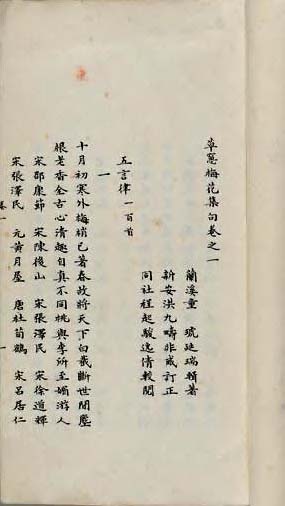 草窓梅花集句卷之一
蘭溪童 琥廷瑞輯著
新安洪九疇非咸訂正
同社程起駿逸倩較閱
五言律一百首
一
十月初寒外梅梢已著春故將天下白截斷世間塵
根老香全古心清趣自真不同桃與李所至媚游人
宋邵康節 宋陳後山 宋張澤民 宋徐道輝
宋張澤民 元黄月屋 唐杜荀鶴 宋吕居仁
卷一
一